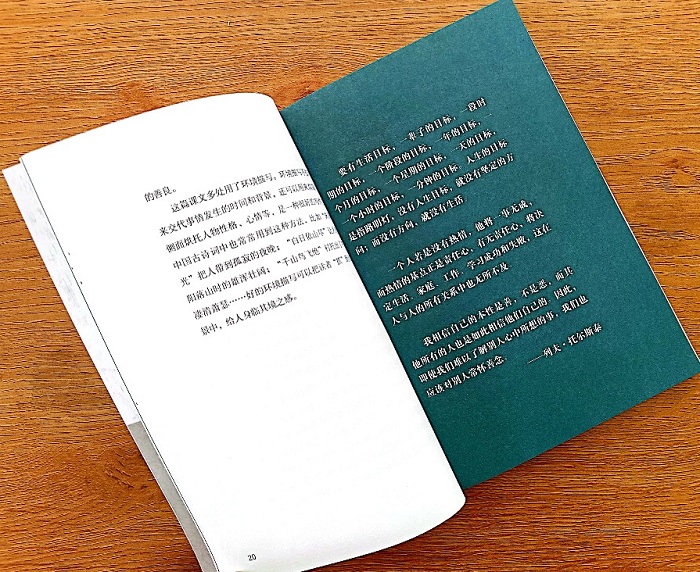 的善良。
这篇课文多处用了环境描写。环境描写
来交代事情发生的时间和背景，还可以用来
侧面烘托人物性格、心情等，是一种很
中国古诗词中也常常用到这种方法，比如
光”把人带到孤寂的夜晚；“白日依山尽”让
阳落山时的雄浑壮阔；“千山鸟飞绝”
凄清萧瑟……好的环境描写可以把读者
景中，给人身临其境之感。
20
要有生活目标，一辈子的目标，一段时
期的目标，一个阶段的目标，一年的目标，一
个月的目标，一个星期的目标，一天的目标，
一个小时的目标，一分钟的目标。人生的目标
是指路明灯。没有人生目标，就没有坚定的方
向；而没有方向，就没有生活
一个人若是没有热情，他将一事无成，
而热情的基点正是责任心。有无责任心，将决
定生活、家庭、工作、学习成功和失败。这在
人与人的所有关系中也无所不及
我相信自己的本性是善，不是恶，而其
他所有的人也是如此相信他们自己的。因此，
即使我们难以了解别人心中所想的事，我们也
应该对别人常怀善念。
——列夫·托尔斯泰